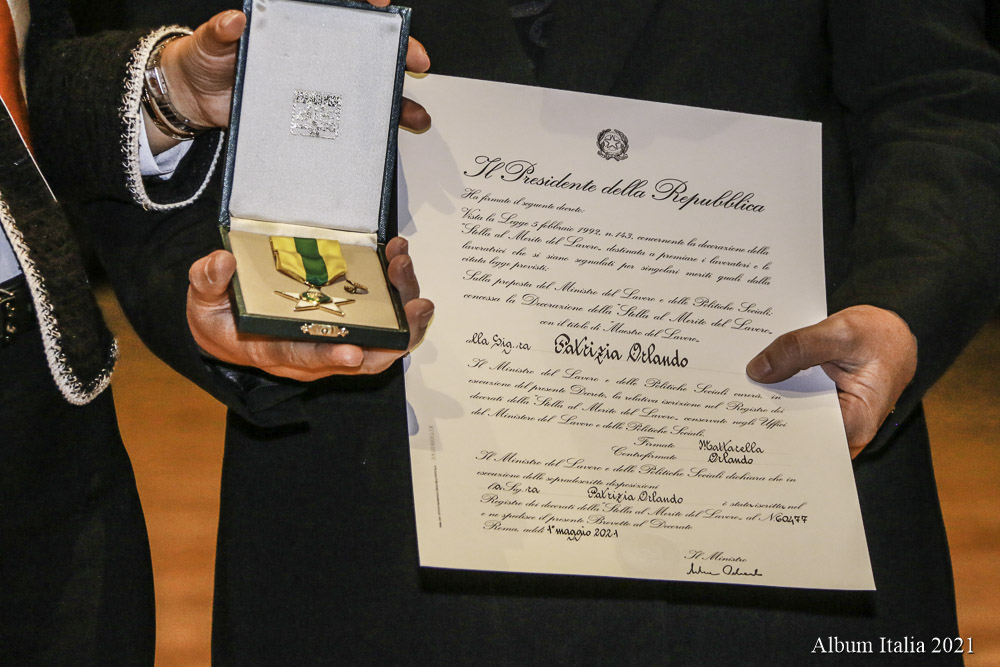 Il Presidente della Repubblica
Ha firmato il seguente decreto:
Vista la Legge 5 febbraio 1992, n. 143, concernente la decorazione della
"Stella al Merito del Lavoro", destinata a premiare i lavoratori e le
lavoratrici che si siano segnalati per singolari meriti quali dalla
citata legge previsti;
Sulla proposta del Ministro del Lavoro e delle Politiche Sociali;
concessa la Decorazione della "Stella al Merito del Lavoro"
con il titolo di Maestro del Lavoro,
alla Sig.ra Patrizia Orlando
Il Ministro del Lavoro e delle Politiche Sociali curerà, in
esecuzione del presente Decreto, la relativa iscrizione nel Registro dei
decorati della "Stella al Merito del Lavoro", conservato negli Uffici
del Ministero del Lavoro e delle Politiche Sociali.
Firmato Mattarella
Controfirmato Orlando
Il Ministro del Lavoro e delle Politiche Sociali dichiara che in
esecuzione delle sopradescritte disposizioni
la Sig.ra Patrizia Orlando è stata iscritta nel
Registro dei decorati della "Stella al Merito del Lavoro", al N. 60477
e ne spedisce il presente Brevetto al Decorato
Roma, addì 1° maggio 2021
Il Ministro
Album Italia 2021